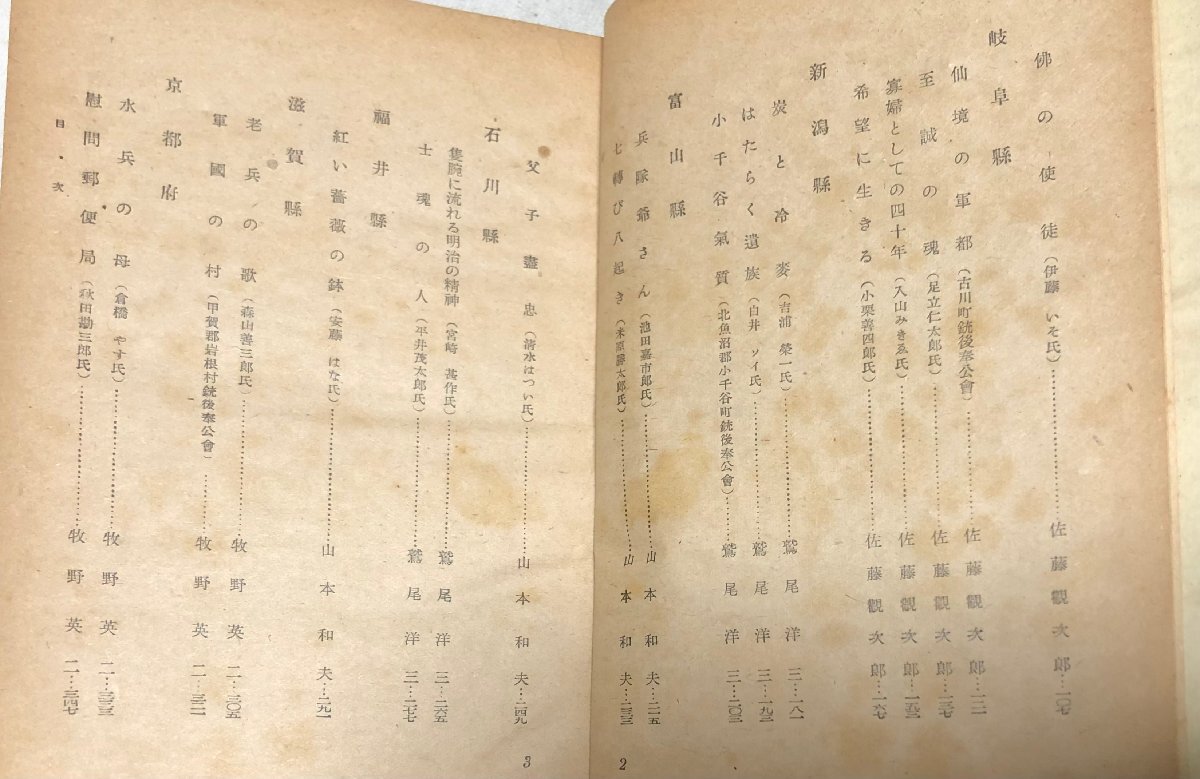 佛の使徒(伊藤いそ氏)……佐藤觀次郎…一〇七
岐阜縣
仙境の軍都(古川町銃後奉公會)……佐藤觀次郎…一二一
至誠の魂(足立仁太郎氏)……佐藤觀次郎…一三七
寡婦としての四十年(入山みきゑ氏)……佐藤觀次郎…一五三
希望に生きる(小栗善四郎氏)……佐藤觀次郎…一六七
新潟縣
炭と冷麥(吉浦榮一氏)……鷲尾洋三…一八一
はたらく遺族(白井ソイ氏)……鷲尾洋三…一九三
小千谷氣質(北魚沼郡小千谷町銃後奉公會)……鷲尾洋三…二〇三
富山縣
兵隊爺さん(池田嘉市郎氏)……山本和夫…二一五
七轉び八起き(米原勝太郎氏)……山本和夫…二三三
2
父子盡忠(清水はつい氏)……山本和夫…二四九
石川縣
隻腕に流れる明治の精神(宮崎甚作氏)……鷲尾洋三…二六五
士魂の人(平井茂太郎氏)……鷲尾洋三…二七七
福井縣
紅い薔薇の鉢(安藤はな氏)……山本和夫…二九一
滋賀縣
老兵の歌(森山善三郎氏)……牧野英二…三〇五
軍國の村(甲賀郡岩根村銃後奉公會)……牧野英二…三二一
京都府
水兵の母(倉橋やす氏)……牧野英二…三三三
慰問郵便局(秋田勘三郎氏)……牧野英二…三四七
目・次
3